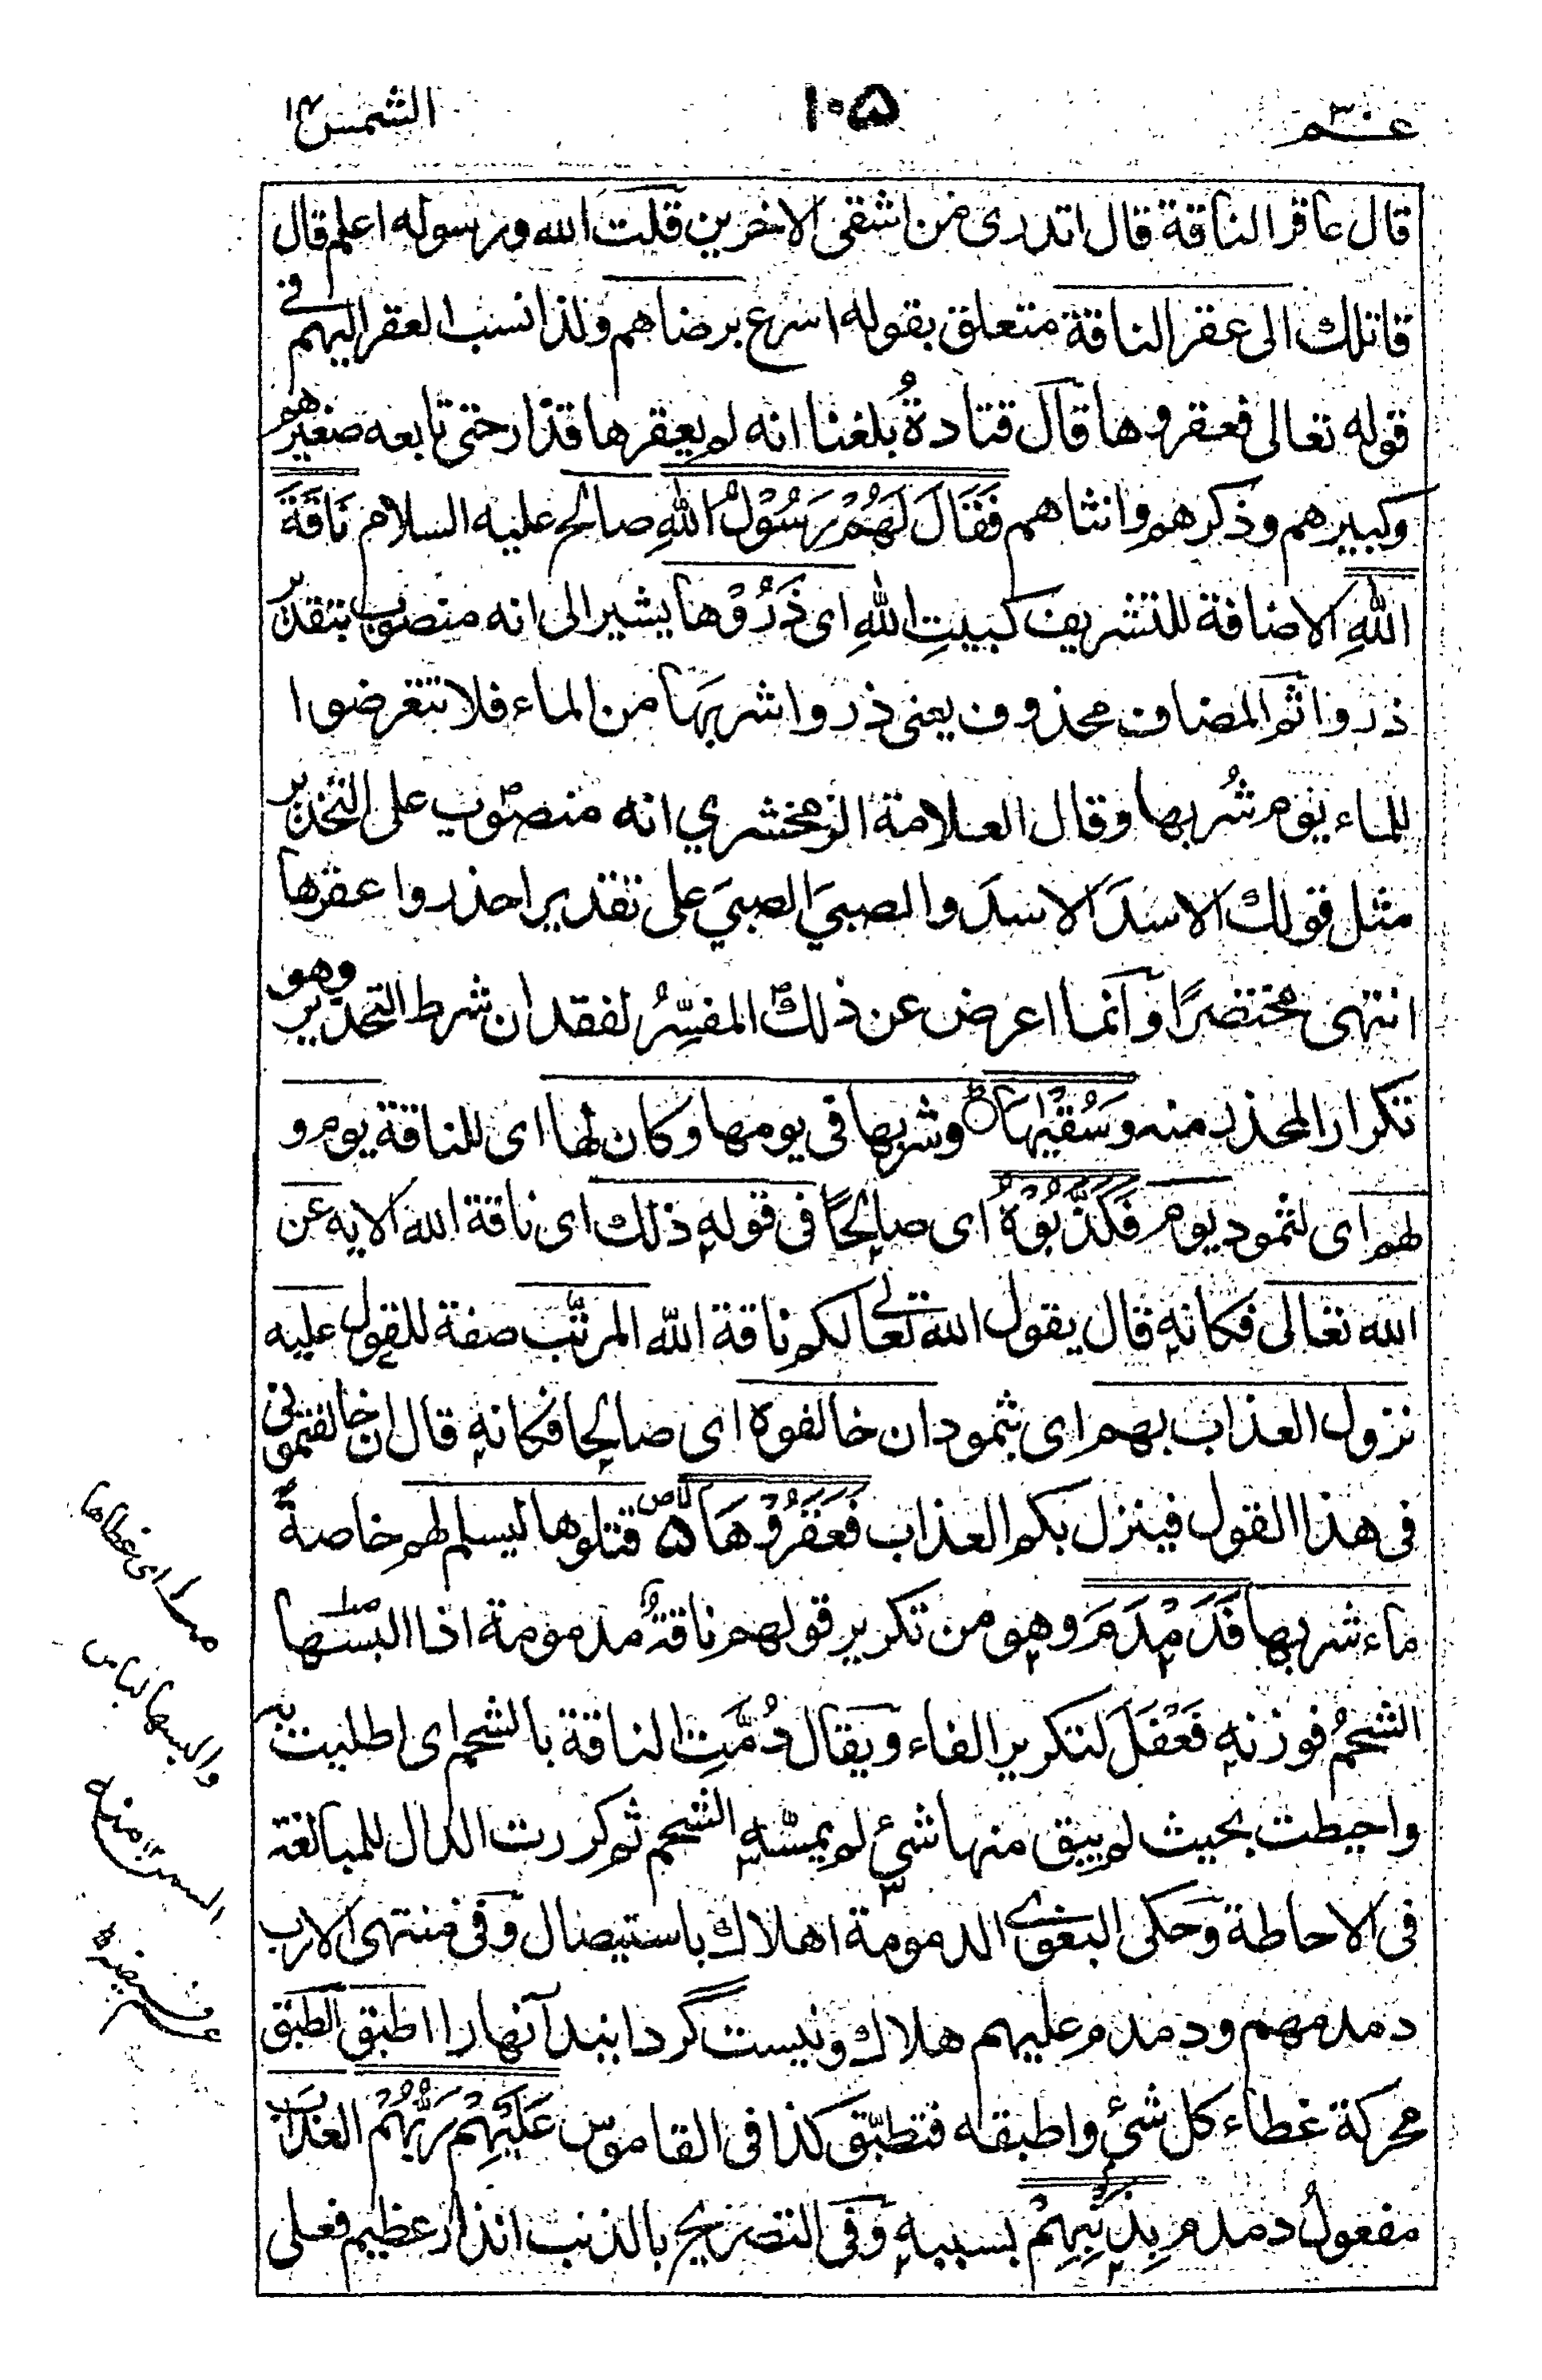 عم ٣٠
١٠٥
الشمس ٩١
قال عاقر الناقة قال اتدرى من اشقى الاخرين قلت الله ورسوله اعلم قال
قاتلك الى عقر الناقة متعلق بقوله اسرع برضاهم ولذا نسب العقر اليهم فى
قوله تعالى فعقروها قال قتادةُ بلغنا انه لم يعقرها قذار حتى تابعه صغيرهم
وكبيرهم وذكرهم وانثاهم فَقَالَ لَهُمْ رَسُوْلُ اللهِ صالح عليه السلام نَاقَةَ
اللهِ الاضافة للتشريف كبيتِ اللهِ اى ذَرُوْها يشير الى انه منصوب بتقدير
ذروا ثم المضاف محذوف يعنى ذروا شربها من الماء فلا تتعرضوا
للماء يوم شُربها وقال العلامة الزمخشري انه منصوب على التحذير
مثل قولك الاسدَ الاسدَ والصبيَ الصبيَ على تقدير احذروا عقرها
انتهى مختصرًا وانما اعرض عن ذلك المفسِّرُ لفقدان شرط التحذير وهو
تكرار المحذر منه وَسُقْيٰهَا وشربها فى يومها وكان لها اى للناقة يوم و
لهم اى لثمود يوم فَكَذَّبُوْهُ اى صالحًا فى قوله ذلك اى ناقة الله الايه عن
الله تعالى فكانه قال يقول الله تعالى لكم ناقة الله المرتَّب صفة للقول عليه
نزول العذاب بهم اى بثمود ان خالفوه اى صالحا فكانه قال ان خالفتمونى
فى هذا القول فينزل بكم العذاب فَعَقَرُوْهَا ۵ قتلوها ليسلم لهم خاصةً
ماء شربها فَدَمْدَمَ وهو من تكرير قولهم ناقةٌ مدمومة اذا البسها
الشحمُ فوزنه فَعْفَلَ لتكرير الفاء ويقال دُمَّتِ الناقة بالشحم اى اطليت به
واحيطت بحيث لم يبق منها شئ لم يمسّه الشحم ثم كررت الدال للمبالغة
فى الاحاطة وحكى البغوى الدمومة اهلاك باستيصال وفى منتهى الارب
دمدمهم ودمدم عليهم هلاك ونيست گردانيد آنها را اطبق الطبق
محركة غطاء كل شئ واطبقه فتطبّق كذا فى القاموس عَلَيْهِمْ رَبُّهُمْ العذابَ
مفعولُ دمدم بِذَنْبِهِمْ بسببه وفى التصريح بالذنب انذار عظيم فعلى